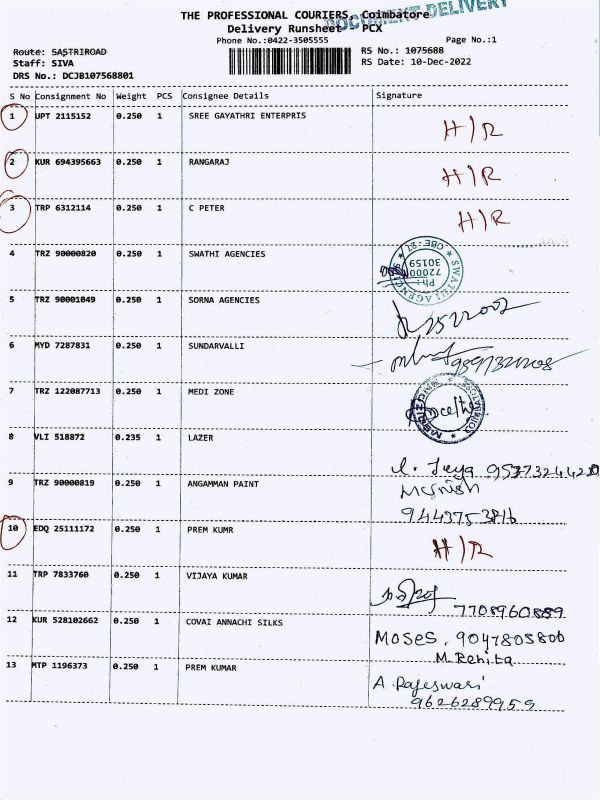 THE PROFESSIONAL COURIERS, Coimbatore
DOCUMENT DELIVERY
Delivery Runsheet PCX
Phone No.:0422-3505555 Page No.:1
Route: SASTRIROAD RS No.: 1075688
Staff: SIVA RS Date: 10-Dec-2022
DRS No.: DCJB107568801
S No Consignment No Weight PCS Consignee Details Signature
1 UPT 2115152 0.250 1 SREE GAYATHRI ENTERPRIS H/R
2 KUR 694395663 0.250 1 RANGARAJ H/R
3 TRP 6312114 0.250 1 C PETER H/R
4 TRZ 90000820 0.250 1 SWATHI AGENCIES
SWATHI AGENCIES
CBE-27
5 TRZ 90001049 0.250 1 SORNA AGENCIES
6 MYD 7287831 0.250 1 SUNDARVALLI
7 TRZ 122087713 0.250 1 MEDI ZONE
8 VLI 518872 0.235 1 LAZER
9 TRZ 90000819 0.250 1 ANGAMMAN PAINT
10 EDQ 25111172 0.250 1 PREM KUMR H/R
11 TRP 7833760 0.250 1 VIJAYA KUMAR
7708960889
12 KUR 528102662 0.250 1 COVAI ANNACHI SILKS Moses. 9047805800
M. Renita
13 MTP 1196373 0.250 1 PREM KUMAR A. Rajeswari
9626289959